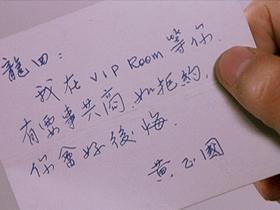 龍四：
我在VIP Room等你，
有要事共商，如拒約，
你會好後悔.
黃正國